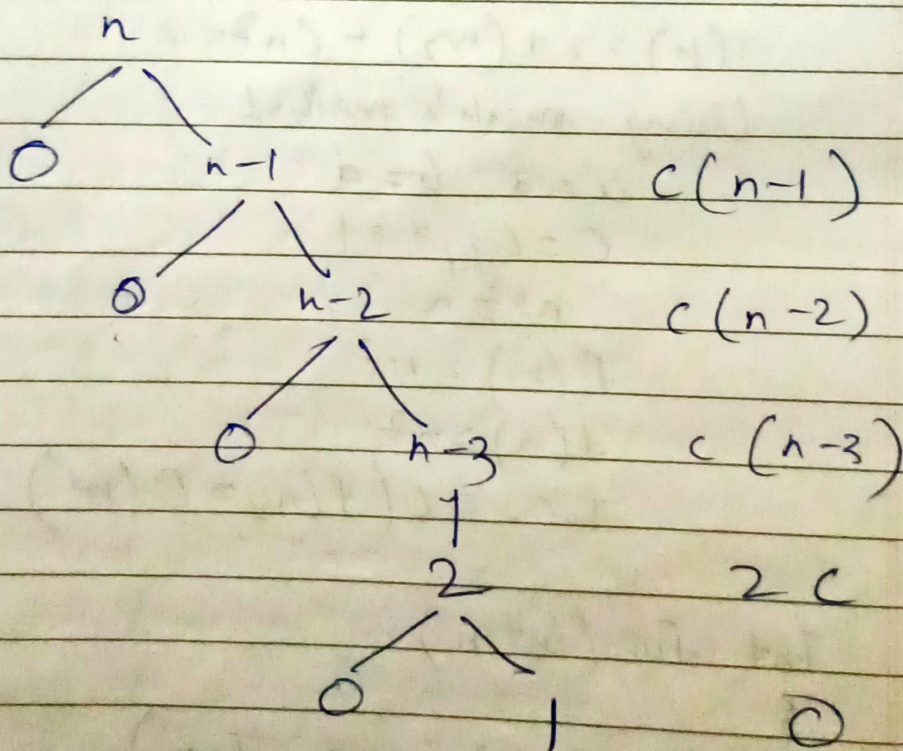 n
0 n-1 c(n-1)
0 n-2 c(n-2)
0 n-3 c(n-3)
2 2c
0 1 0